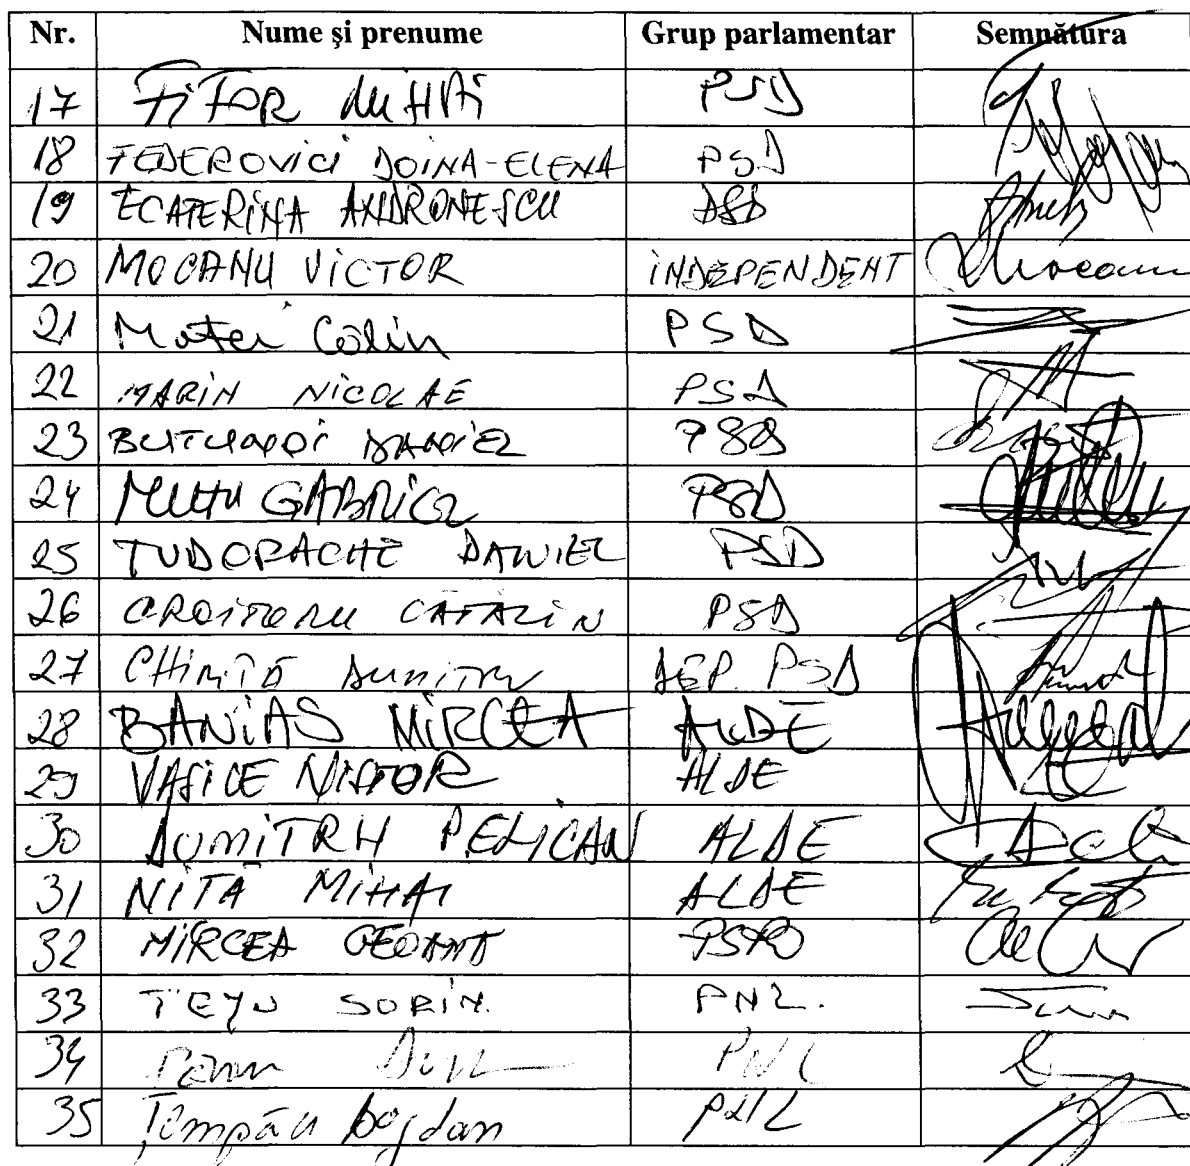 Nr. Nume şi prenume Grup parlamentar Semnătura
17 FIFOR MIHAI PSD
18 FEDEROVICI DOINA-ELENA PSD
19 ECATERINA ANDRONESCU PSD
20 MOCANU VICTOR INDEPENDENT
21 Matei Călin PSD
22 MARIN NICOLAE PSD
23 BUTUNOI DANIEL PSD
24 MUTU GABRIEL PSD
25 TUDORACHE DANIEL PSD
26 CROITORU CĂTĂLIN PSD
27 CHIRIȚĂ DUMITRU DEP. PSD
28 BANIAS MIRCEA ALDE
29 VASILE NISTOR ALDE
30 DUMITRU PELICAN ALDE
31 NITĂ MIHAI ALDE
32 MIRCEA GEOANĂ PSRO
33 TEJU SORIN. PNL.
34 PNL
35 Țîmpău bogdan PNL